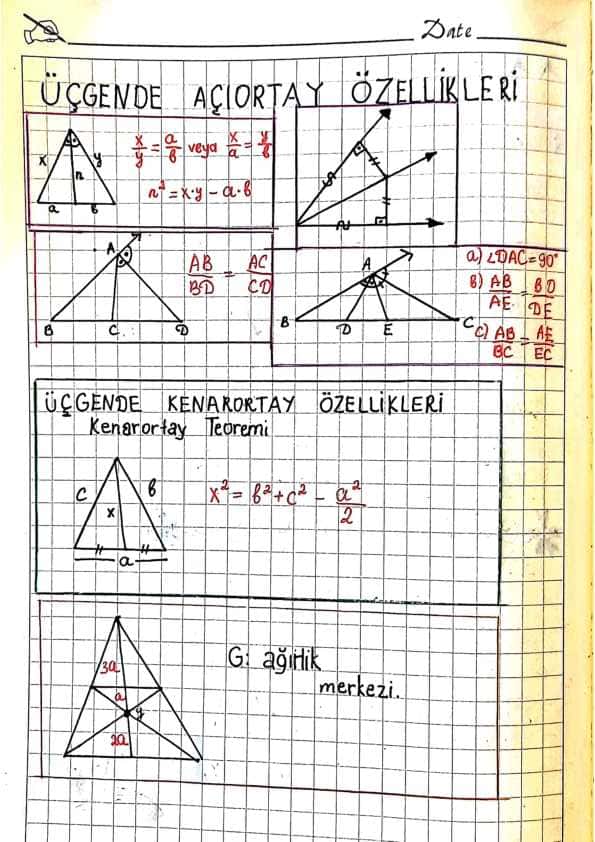 Date
ÜÇGENDE AÇIORTAY ÖZELLİKLERİ
x/y = a/b veya x/a = y/b
n² = x·y – a·b
x
y
n
a
b
A
B
C
D
AB/BD = AC/CD
A
B
D
E
C
a) ∠DAC = 90°
b) AB/AE = BD/DE
c) AB/BC = AE/EC
ÜÇGENDE KENARORTAY ÖZELLİKLERİ
Kenarortay Teoremi
c
b
x
a
x² = b² + c² – a²/2
3a
a
y
2a
G: ağırlık
merkezi.